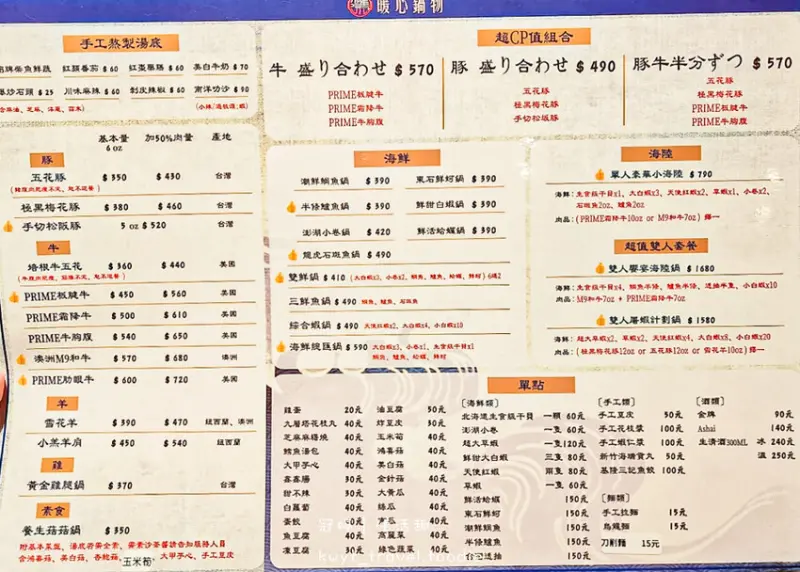 暖心鍋物
手工熬製湯底
招牌柴魚鮮蔬 紅顏番茄 $60 紅棗藥膳 $60 美白牛奶 $70
爆炒石頭 $25 川味麻辣 $60 剝皮辣椒 $60 南洋叻沙 $90
基本量 加50%肉量 產地
6 oz
豚
五花豚 $350 $430 台灣
極黑梅花豚 $380 $460 台灣
手切松阪豚 5 oz $520 台灣
牛
培根牛五花 $360 $440 美國
PRIME板腱牛 $450 $560 美國
PRIME霜降牛 $500 $610 美國
PRIME牛胸腹 $540 $650 美國
澳洲M9和牛 $570 $680 澳洲
PRIME肋眼牛 $600 $720 美國
羊
雪花羊 $390 $470 紐西蘭、澳洲
小羔羊肩 $450 $540 紐西蘭
雞
黃金雞腿鍋 $370 台灣
素食
養生菇菇鍋 $350
玉米筍
大甲芋心、手工豆皮
超CP值組合
牛 盛り合わせ $570
PRIME板腱牛
PRIME霜降牛
PRIME牛胸腹
豚 盛り合わせ $490
五花豚
極黑梅花豚
手切松坂豚
豚牛半分ずつ $570
五花豚
極黑梅花豚
PRIME板腱牛
PRIME霜降牛
海鮮
潮鮮鯛魚鍋 $390 東石鮮蚵鍋 $390
半條鱸魚鍋 $390 鮮甜白蝦鍋 $390
澎湖小卷鍋 $420 鮮活蛤蠣鍋 $390
龍虎石斑魚鍋 $490
雙鮮鍋 $410 (大白蝦x3、小卷x2、鯛魚、鱸魚、蛤蠣、鮮蚵) 6選2
三鮮魚鍋 $490 鯛魚、鱸魚、石斑魚
綜合蝦鍋 $490 天使紅蝦x2、大白蝦x4、小白蝦x10
海鮮總匯鍋 $590 大白蝦x3、小卷x1、生食級干貝x1
鯛魚、鱸魚、蛤蠣、鮮蚵
海陸
單人豪華小海陸 $790
海鮮:生食級干貝x1、大白蝦x3、天使紅蝦x2、草蝦x1、小卷x2、
石斑魚2oz、鱸魚2oz
肉品:(PRIME霜降牛10oz or M9和牛7oz) 擇一
超值雙人套餐
雙人饗宴海陸鍋 $1680
海鮮:生食級干貝x4、鯛魚半條、鱸魚半條、透抽半隻、小白蝦x10
肉品:M9和牛7oz + PRIME霜降牛7oz
雙人屠蝦計劃鍋 $1580
海鮮:超大草蝦x2、草蝦x2、天使紅蝦x4、大白蝦x8、小白蝦x20
肉品:(極黑梅花豚12oz or 五花豚12oz or 雪花羊10oz) 擇一
單點
雞蛋 20元
九層塔花枝丸 40元
芝麻麻糬燒 40元
鱈魚湯包 40元
大甲芋心 40元
鑫鑫腸 30元
甜不辣 30元
白蘿蔔 40元
蛋餃 30元
魚豆腐 40元
凍豆腐 30元
油豆腐 30元
炸豆皮 30元
玉米筍 40元
鴻喜菇 40元
美白菇 40元
金針菇 40元
大黃瓜 40元
絲瓜 40元
高麗菜 40元
綠色蔬菜 40元
〔海鮮類〕
北海道生食級干貝 一顆 60元
澎湖小卷 一隻 60元
超大草蝦 一隻120元
鮮甜大白蝦 三隻 80元
天使紅蝦 兩隻 80元
草蝦 一隻 60元
鮮活蛤蠣 150元
東石鮮蚵 150元
潮鮮鯛魚 150元
半條鱸魚 150元
台灣透抽 150元
〔手工類〕
手工豆皮 50元
手工花枝漿 100元
手工蝦仁漿 100元
新竹海瑞貢丸 50元
基隆三記魚餃 100元
〔麵類〕
手工拉麵 15元
烏龍麵 15元
刀削麵 15元
〔酒類〕
金牌 90元
Ashai 140元
生清酒300ML 冰 240元
溫 250元
kuyi_travel.food